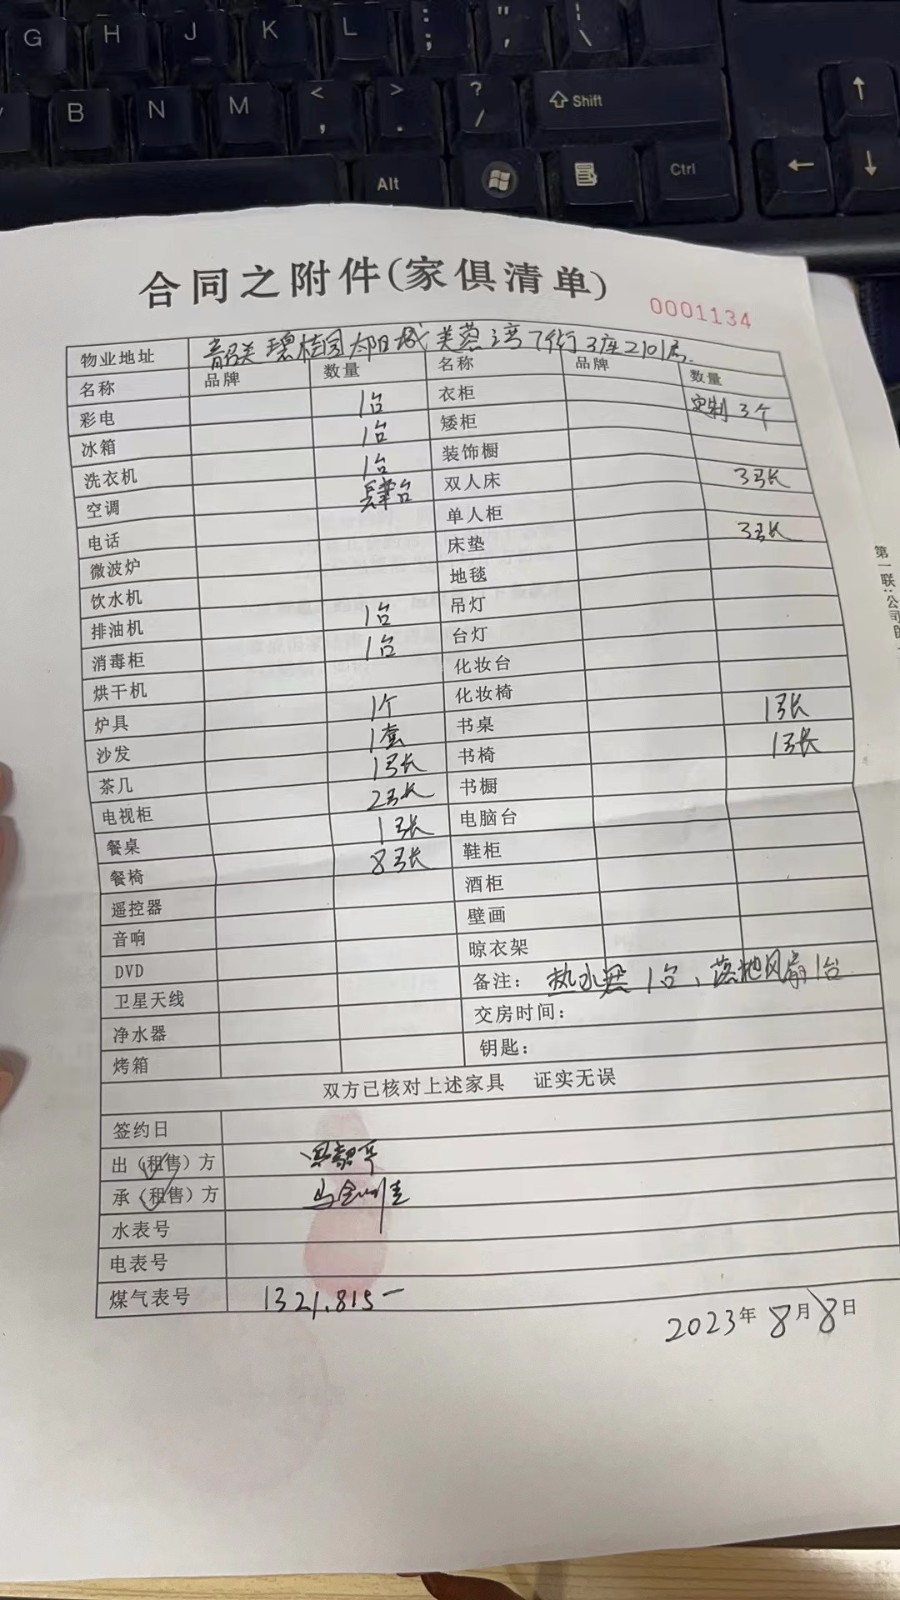 G H J K L : ; " ' | \
B N M < , > . ? / Shift
Alt Ctrl
合同之附件(家俱清单)
0001134
物业地址 韶关碧桂园太阳城芙蓉湾7街3座2101房
名称 品牌 数量 名称 品牌 数量
彩电 1台 衣柜 定制3个
冰箱 1台 矮柜
洗衣机 1台 装饰橱
空调 肆台 双人床 3张
电话 单人柜
微波炉 床垫 3张
饮水机 地毯
排油机 1台 吊灯
消毒柜 1台 台灯
烘干机 化妆台
炉具 1个 化妆椅
沙发 1套 书桌 1张
茶几 1张 书椅 1张
电视柜 2张 书橱
餐桌 1张 电脑台
餐椅 8张 鞋柜
遥控器 酒柜
音响 壁画
DVD 晾衣架
卫星天线 备注: 热水器1台、落地风扇1台
净水器 交房时间:
烤箱 钥匙:
双方已核对上述家具 证实无误
签约日
出(租售)方
承(租售)方
水表号
电表号
煤气表号 1321.815-
2023年8月8日
第一联:公司